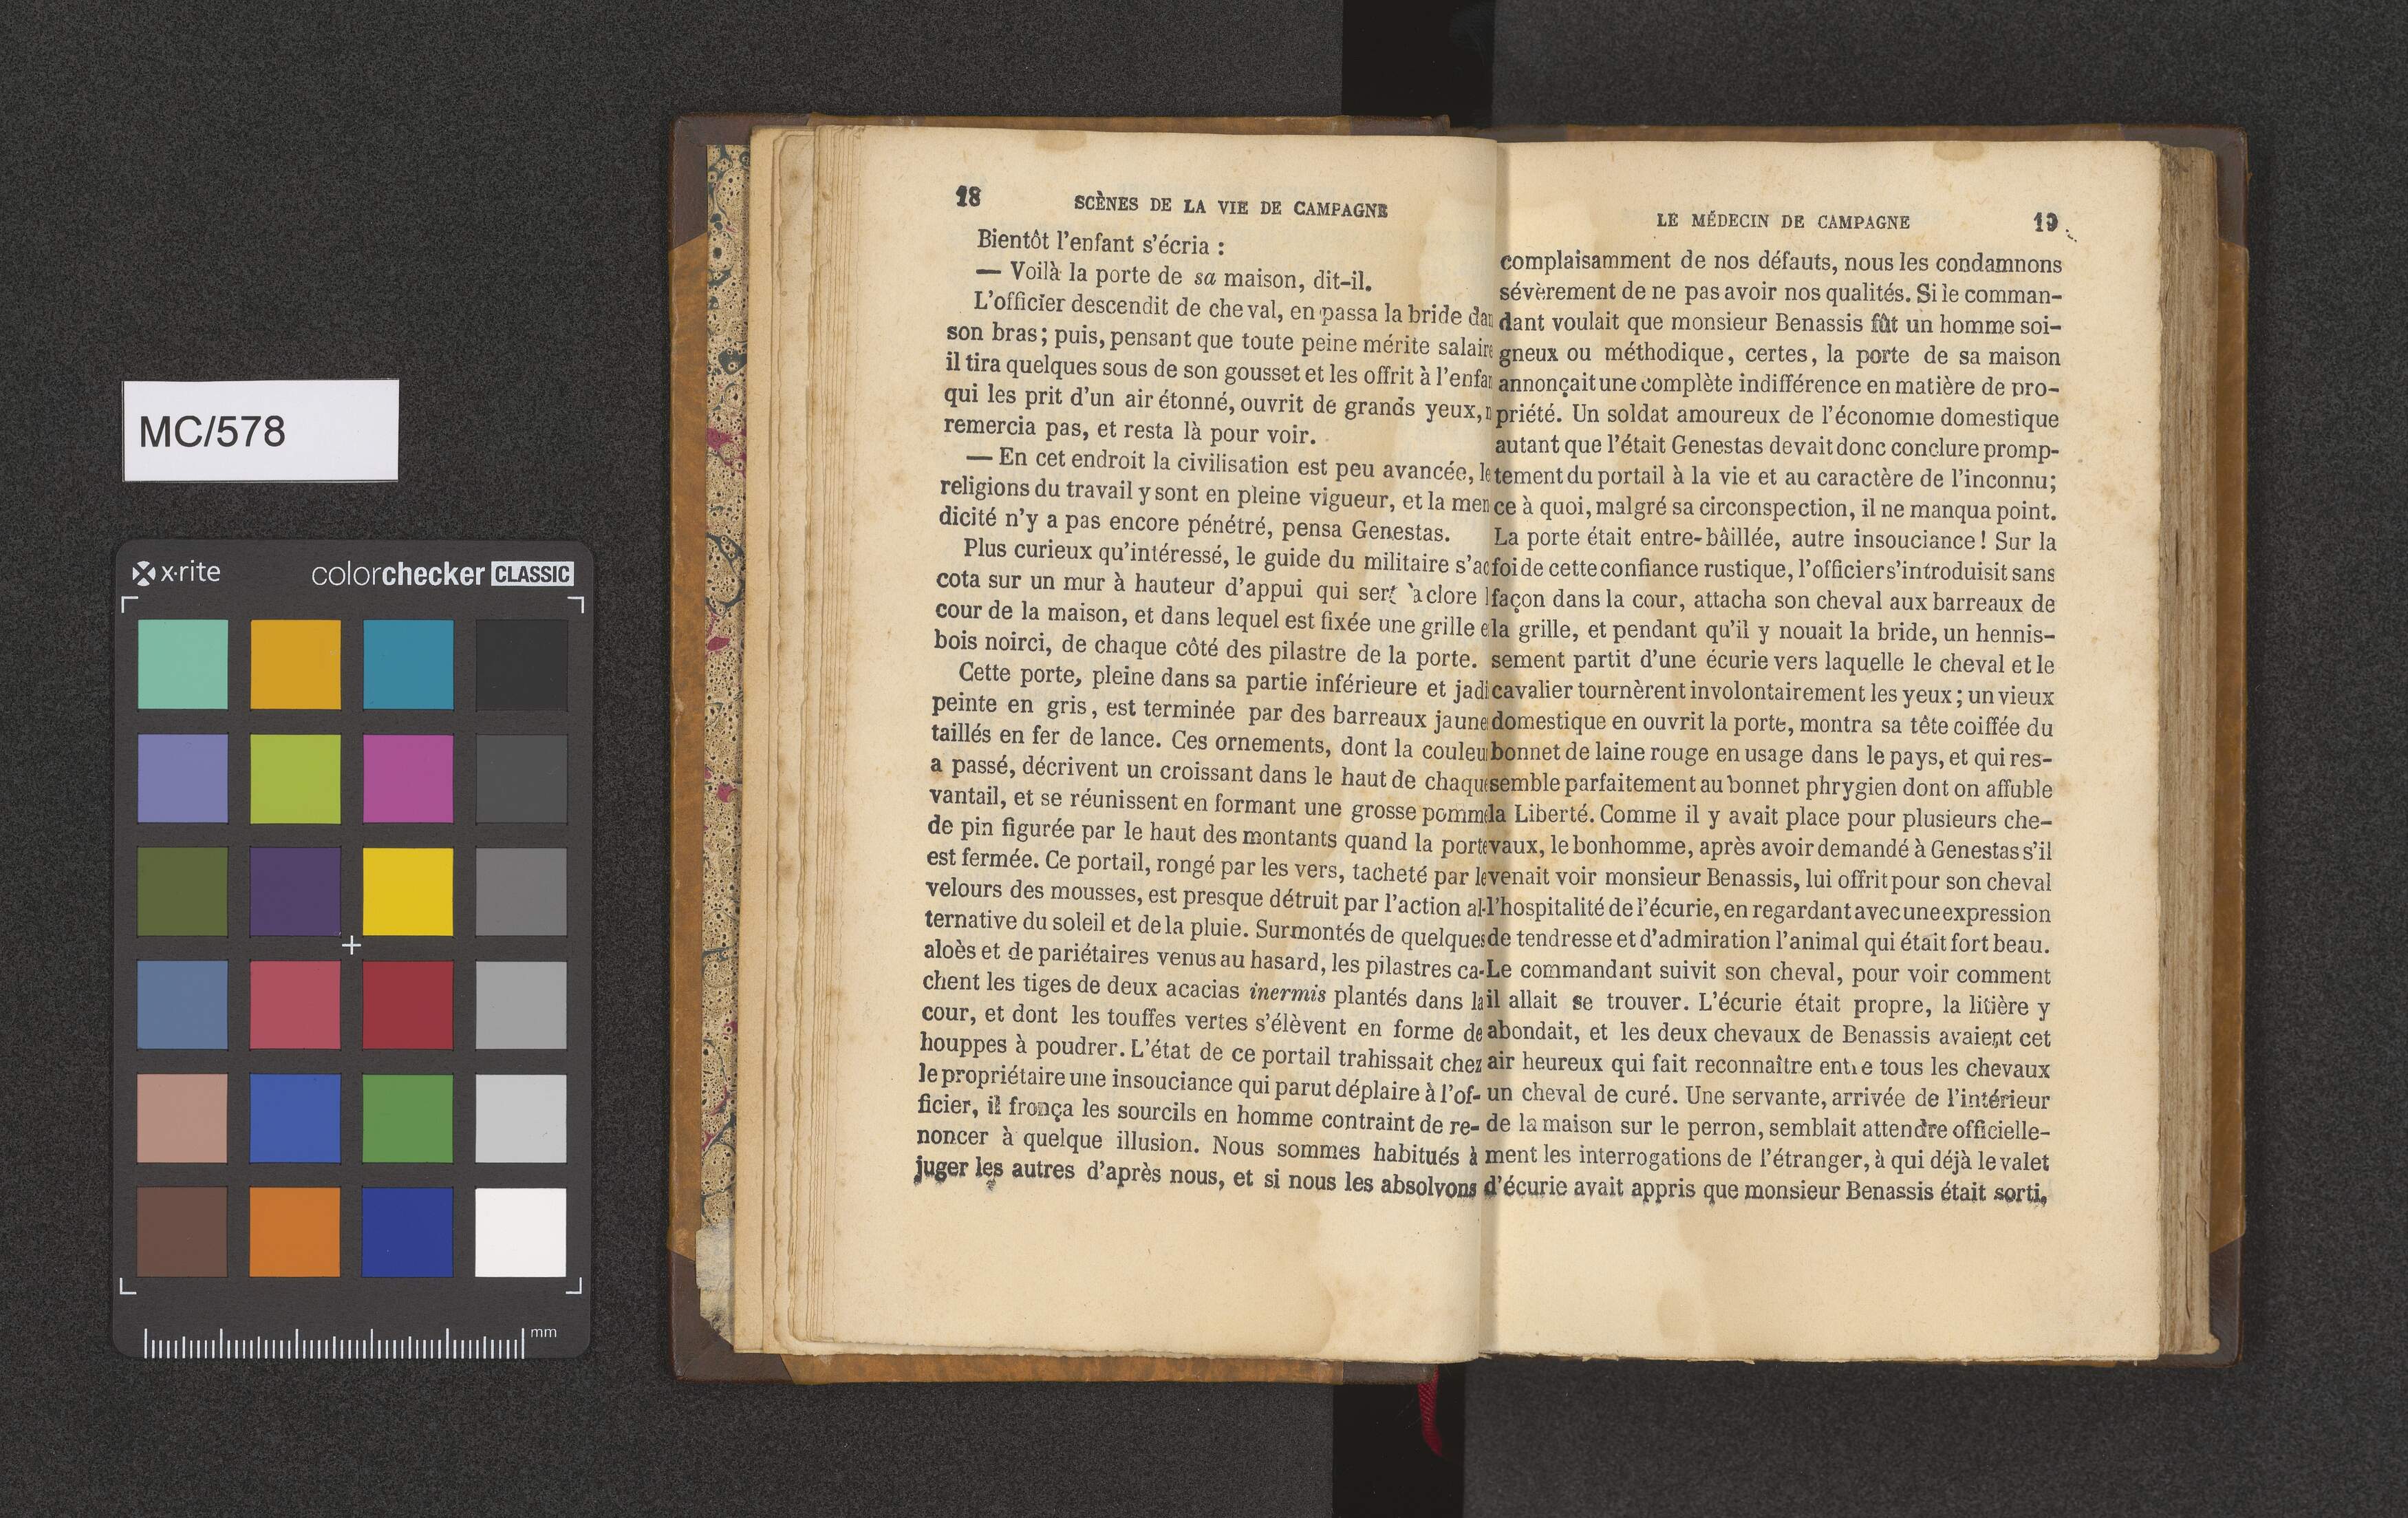 MC/578
x·rite
colorchecker CLASSIC
mm
18
SCÈNES DE LA VIE DE CAMPAGNE
Bientôt l'enfant s'écria :
— Voilà la porte de sa maison, dit-il.
L'officier descendit de cheval, en passa la bride
son bras; puis, pensant que toute peine mérite
il tira quelques sous de son gousset et les offrit à
qui les prit d'un air étonné, ouvrit de grands yeux,
remercia pas, et resta là pour voir.
— En cet endroit la civilisation est peu avancée,
religions du travail y sont en pleine vigueur, et la men
dicité n'y a pas encore pénétré, pensa Genestas.
Plus curieux qu'intéressé, le guide du militaire s'ac
cota sur un mur à hauteur d'appui qui sert à clore
cour de la maison, et dans lequel est fixée une grille
bois noirci, de chaque côté des pilastre de la porte.
Cette porte, pleine dans sa partie inférieure et jadi
peinte en gris, est terminée par des barreaux jaune
taillés en fer de lance. Ces ornements, dont la couleu
a passé, décrivent un croissant dans le haut de chaque
vantail, et se réunissent en formant une grosse pomme
de pin figurée par le haut des montants quand la porte
est fermée. Ce portail, rongé par les vers, tacheté par le
velours des mousses, est presque détruit par l'action al-
ternative du soleil et de la pluie. Surmontés de quelques
aloès et de pariétaires venus au hasard, les pilastres ca-
chent les tiges de deux acacias inermis plantés dans la
cour, et dont les touffes vertes s'élèvent en forme de
houppes à poudrer. L'état de ce portail trahissait chez
le propriétaire une insouciance qui parut déplaire à l'of-
ficier, il fronça les sourcils en homme contraint de re-
noncer à quelque illusion. Nous sommes habitués à
juger les autres d'après nous, et si nous les absolvons
LE MÉDECIN DE CAMPAGNE
19
complaisamment de nos défauts, nous les condamnons
sévèrement de ne pas avoir nos qualités. Si le comman-
dant voulait que monsieur Benassis fût un homme soi-
gneux ou méthodique, certes, la porte de sa maison
annonçait une complète indifférence en matière de pro-
priété. Un soldat amoureux de l'économie domestique
autant que l'était Genestas devait donc conclure promp-
tement du portail à la vie et au caractère de l'inconnu;
ce à quoi, malgré sa circonspection, il ne manqua point.
La porte était entre-bâillée, autre insouciance! Sur la
foi de cette confiance rustique, l'officier s'introduisit sans
façon dans la cour, attacha son cheval aux barreaux de
la grille, et pendant qu'il y nouait la bride, un hennis-
sement partit d'une écurie vers laquelle le cheval et le
cavalier tournèrent involontairement les yeux; un vieux
domestique en ouvrit la porte, montra sa tête coiffée du
bonnet de laine rouge en usage dans le pays, et qui res-
semble parfaitement au bonnet phrygien dont on affuble
la Liberté. Comme il y avait place pour plusieurs che-
vaux, le bonhomme, après avoir demandé à Genestas s'il
venait voir monsieur Benassis, lui offrit pour son cheval
l'hospitalité de l'écurie, en regardant avec une expression
de tendresse et d'admiration l'animal qui était fort beau.
Le commandant suivit son cheval, pour voir comment
il allait se trouver. L'écurie était propre, la litière y
abondait, et les deux chevaux de Benassis avaient cet
air heureux qui fait reconnaître entre tous les chevaux
un cheval de curé. Une servante, arrivée de l'intérieur
de la maison sur le perron, semblait attendre officielle-
ment les interrogations de l'étranger, à qui déjà le valet
d'écurie avait appris que monsieur Benassis était sorti,